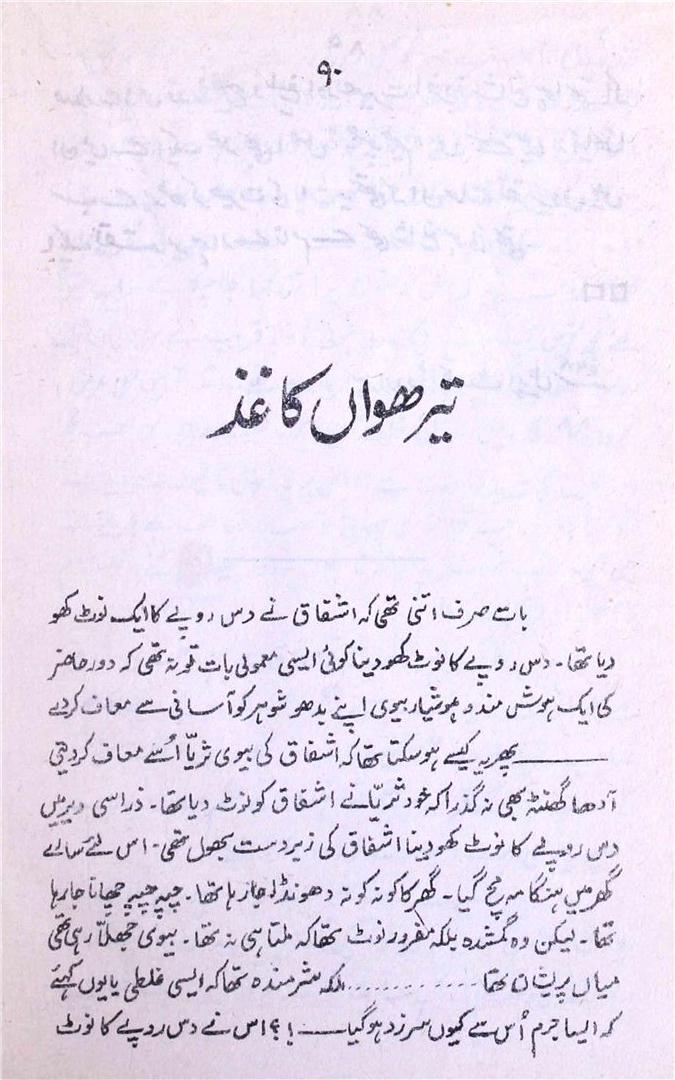 ۹۰
تیرھواں کاغذ
بات صرف اتنی تھی کہ اشفاق نے دس روپے کا ایک نوٹ کھو
دیا تھا۔ دس روپے کا نوٹ کھو دینا کوئی ایسی معمولی بات تو نہ تھی کہ دورِ حاضر
کی ایک ہوش مند و ہوشیار بیوی اپنے بدھو شوہر کو آسانی سے معاف کر دے
ــــــــ پھر یہ کیسے ہو سکتا تھا کہ اشفاق کی بیوی ثریّا اُسے معاف کر دیتی
آدھا گھنٹہ بھی نہ گذرا کہ خود ثریّا نے اشفاق کو نوٹ دیا تھا۔ ذرا سی دیر میں
دس روپے کا نوٹ کھو دینا اشفاق کی زبردست بھول تھی۔ اس لئے سارے
گھر میں ہنگامہ مچ گیا۔ گھر کا کونہ کونہ دھونڈا جا رہا تھا۔ چپہ چپہ چھانا جا رہا
تھا۔ لیکن وہ گمشدہ بلکہ مفرور نوٹ تھا کہ ملتا ہی نہ تھا۔ بیوی جھلّا رہی تھی
میاں پریشان تھا ............ بلکہ شرمندہ تھا کہ ایسی غلطی یا یوں کہئے
کہ ایسا جرم اُس سے کیوں سرزد ہو گیا ــــــ !؟ اس نے دس روپے کا نوٹ